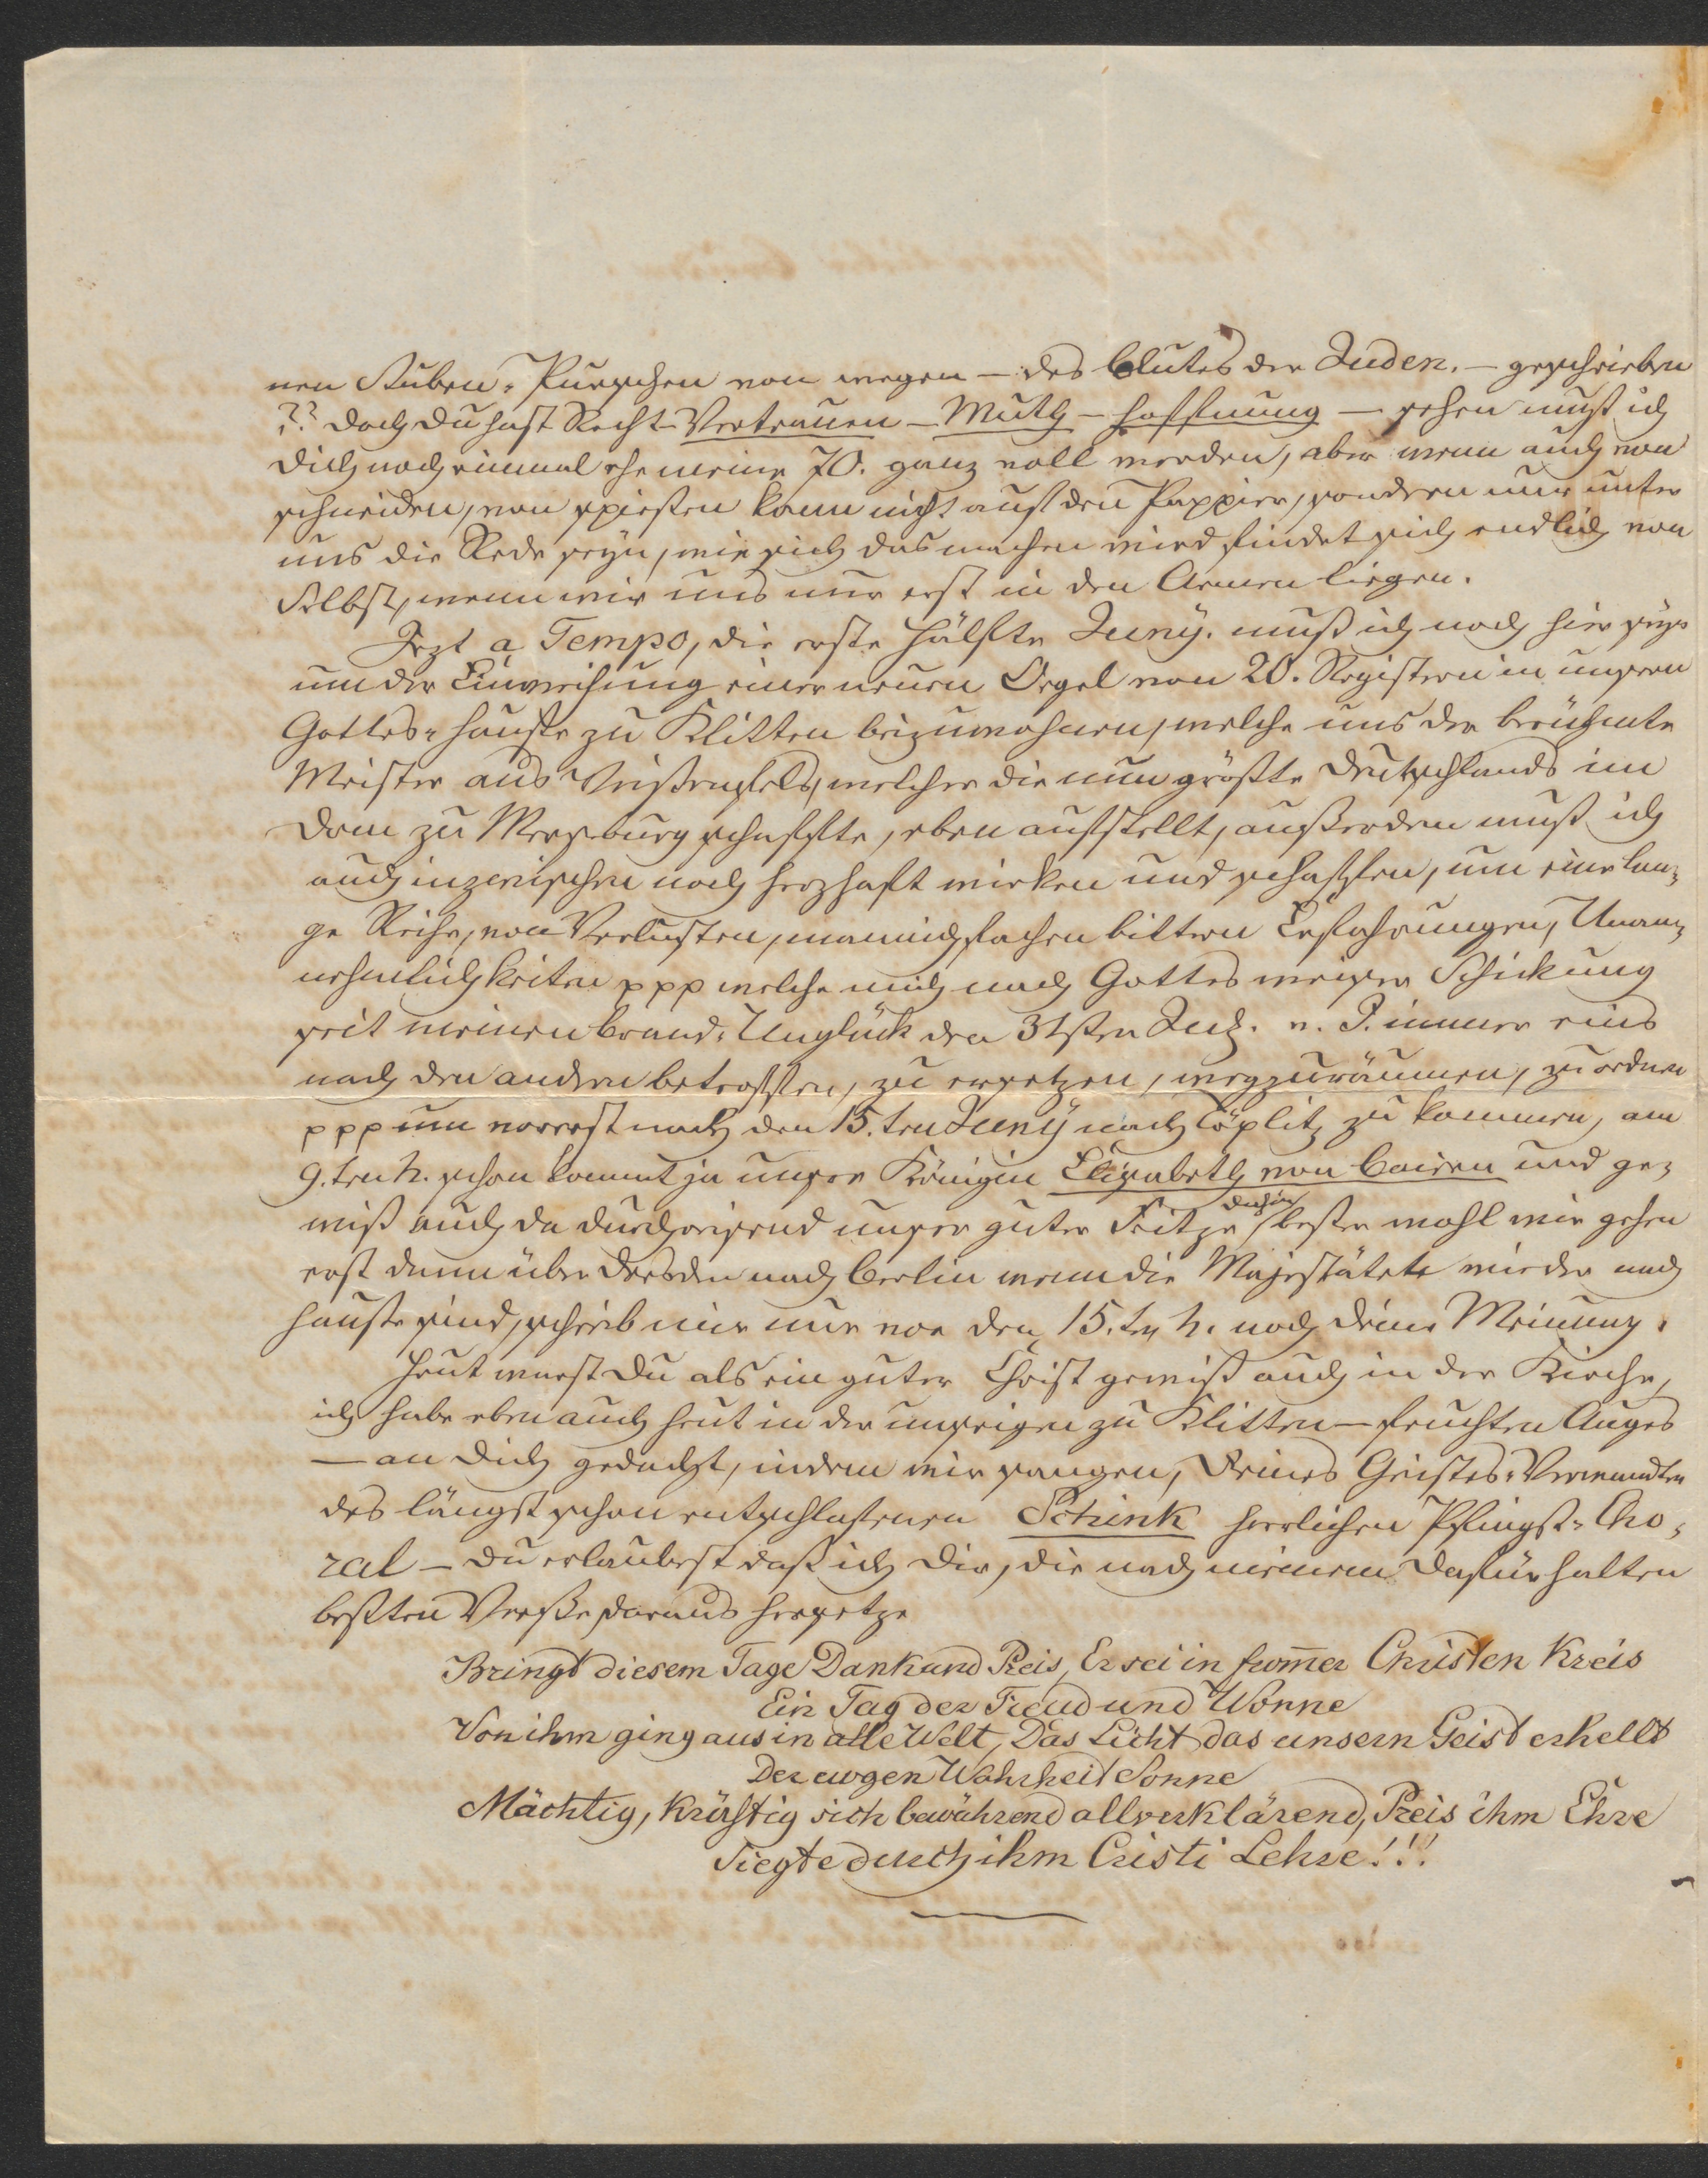 nen Stuben-Purschen von wegen – des Blutes der Juden. – geschrieben
?? doch Du hast Recht – Vertrauen – Muth – Hoffnung – sehen muß ich
Dich noch einmal ehe meine 70. ganz voll werden, aber wenn auch von
schneiden, von schießen kann nicht auf den Pappier, sondern nur unter
uns die Rede seyn, wie sich das machen wird findet sich endlich von
Selbst, wenn wir uns nur erst in den Armen liegen.
Jezt a Tempo, die erste Hälfte Juny. muß ich noch hier seyn
um der Einweihung einer neuen Orgel von 20. Registern in unsern
Gottes-Hauße zu Klitten beizuwohnen, welche uns der berühmte
Meister aus Weißenfels, welcher die nun größte Deutschlands im
Dom zu Merseburg schaffte, eben aufstellt, außerdem muß ich
auch inzwischen noch herzhaft wirken und schaffen, um eine lan-
ge Reihe, von Verlusten, mannichfachen bittern Erfahrungen, Unan-
nehmlichkeiten ppp welche mich nach Gottes weiser Schickung
seit meinen Brand-Unglück den 31sten v. J. immer eins
nach den andern betroffen, zu ersetzen, wegzuräumen, zu ordnen
ppp um vorerst nach den 15.ten Juny nach Töplitz zu kommen, am
9.ten h. schon kommt ja unsre Königin Elisabeth von Baiern und ge-
wiß auch da durchreisend unser guter Fritze
dahin
bester wohl wir gehen
erst dann über Dresden nach Berlin wenn die Majestäten wieder nach
Hauße sind, schreib mir nur vor den 15.ten h. noch Deine Meinung.
Heut warst Du als ein guter Christ gewiß auch in der Kirche,
ich habe eben auch heut in der unsrigen zu Klitten – feuchten Auges
– an Dich gedacht, indem wir sangen, Deines Geistes-Verwandten
des längst schon entschlafenen Schink herrlichen Pfingst-Cho-
ral – Du erlaubest daß ich Dir, die nach meinem Dafürhalten
besten Verße daraus hersetze
Bringt diesem Tage Dank und Preis, Er sei in from̅er Christen Kreis
Ein Tag der Freud und Wonne
Von ihm ging aus in alle Welt, Das Licht das unsern Geist erhellt
Der ewgen Wahrheit Sonne
Mächtig, Kräftig sich bewährend allverklärend, Preis ihm Ehre
Siegte durch ihm Cristi Lehre!!!